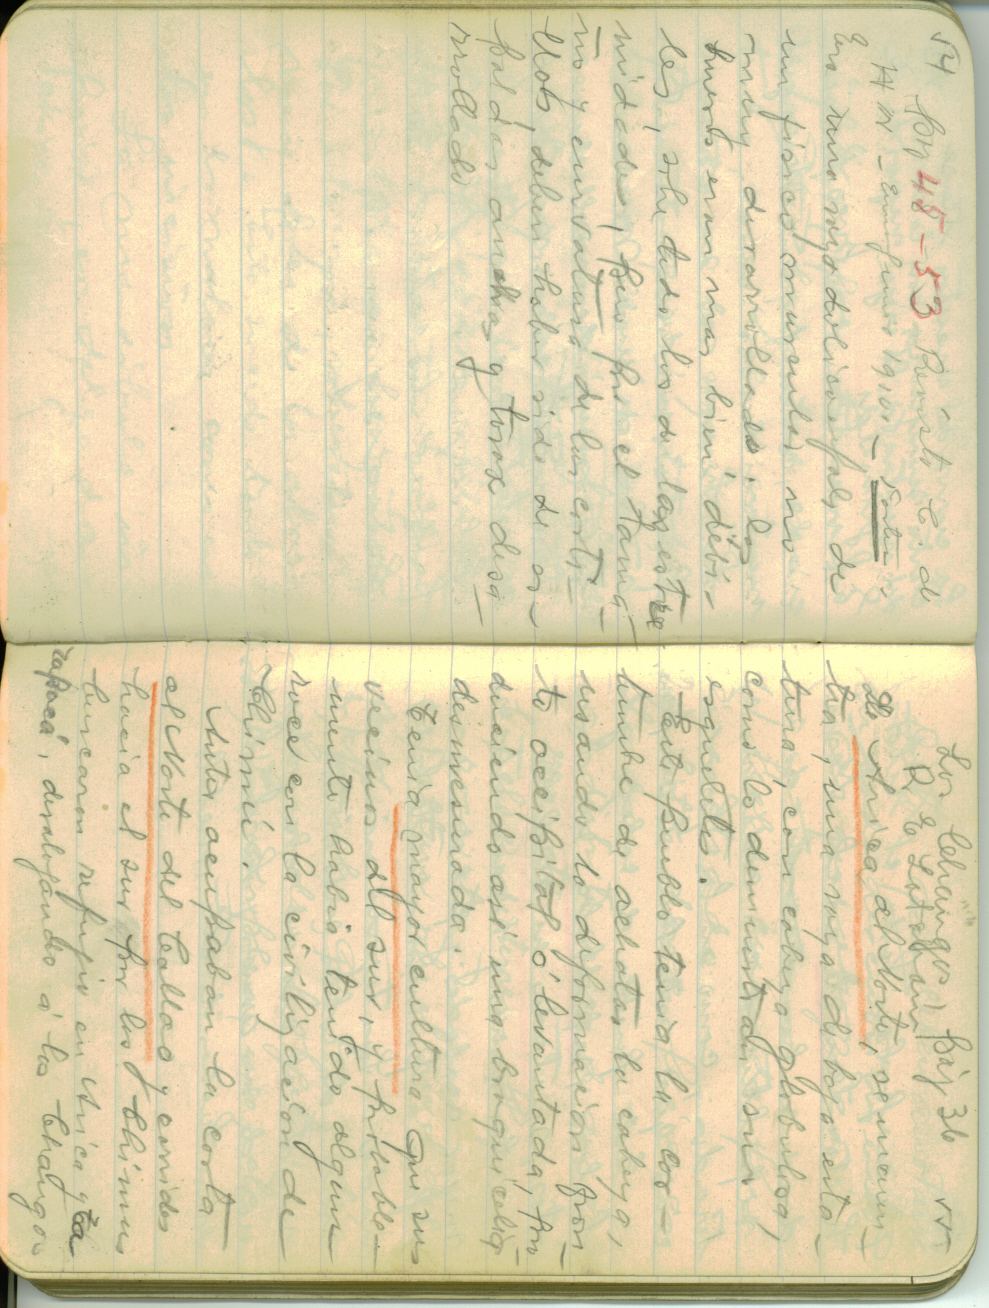 54
pág 48-53 Revista C. d
H N - Enero Junio 1910 -
Era una raza dolicocefala, de
un fisico musculos no
muy desarrollado i los
huesos eran mas bien débi-
les, sobre todo los de las estre
midades, pero por el tama-
ño y curvatura de las costi-
llas, deben haber sido de es-
paldas anchas y torax desa-
rrollado
Los Changos pág 36 55
R. E. Latcham
De Arica al Norte, se encuen-
tra, una raza de baja esta-
tura, con cabeza globulosa,
como lo demuestran sus
esqueletos.
Este pueblo tenia la cos-
tumbre de achatar la cabeza,
usando la deformacion fron-
to occipital ó levantada, pro-
duciendo así una braquicefalia
desmesurada.
Tenia mayor cultura que sus
vecinos del sur, y probable-
mente habia tenido algun
roce con la civilizacion de
Chimú.
Antes ocupaban la costa
al Norte del Callao y corridos
hacia el sur por los Chimus
buscaron refugio en Arica y Ta
rapacá, desalojando a los Changos